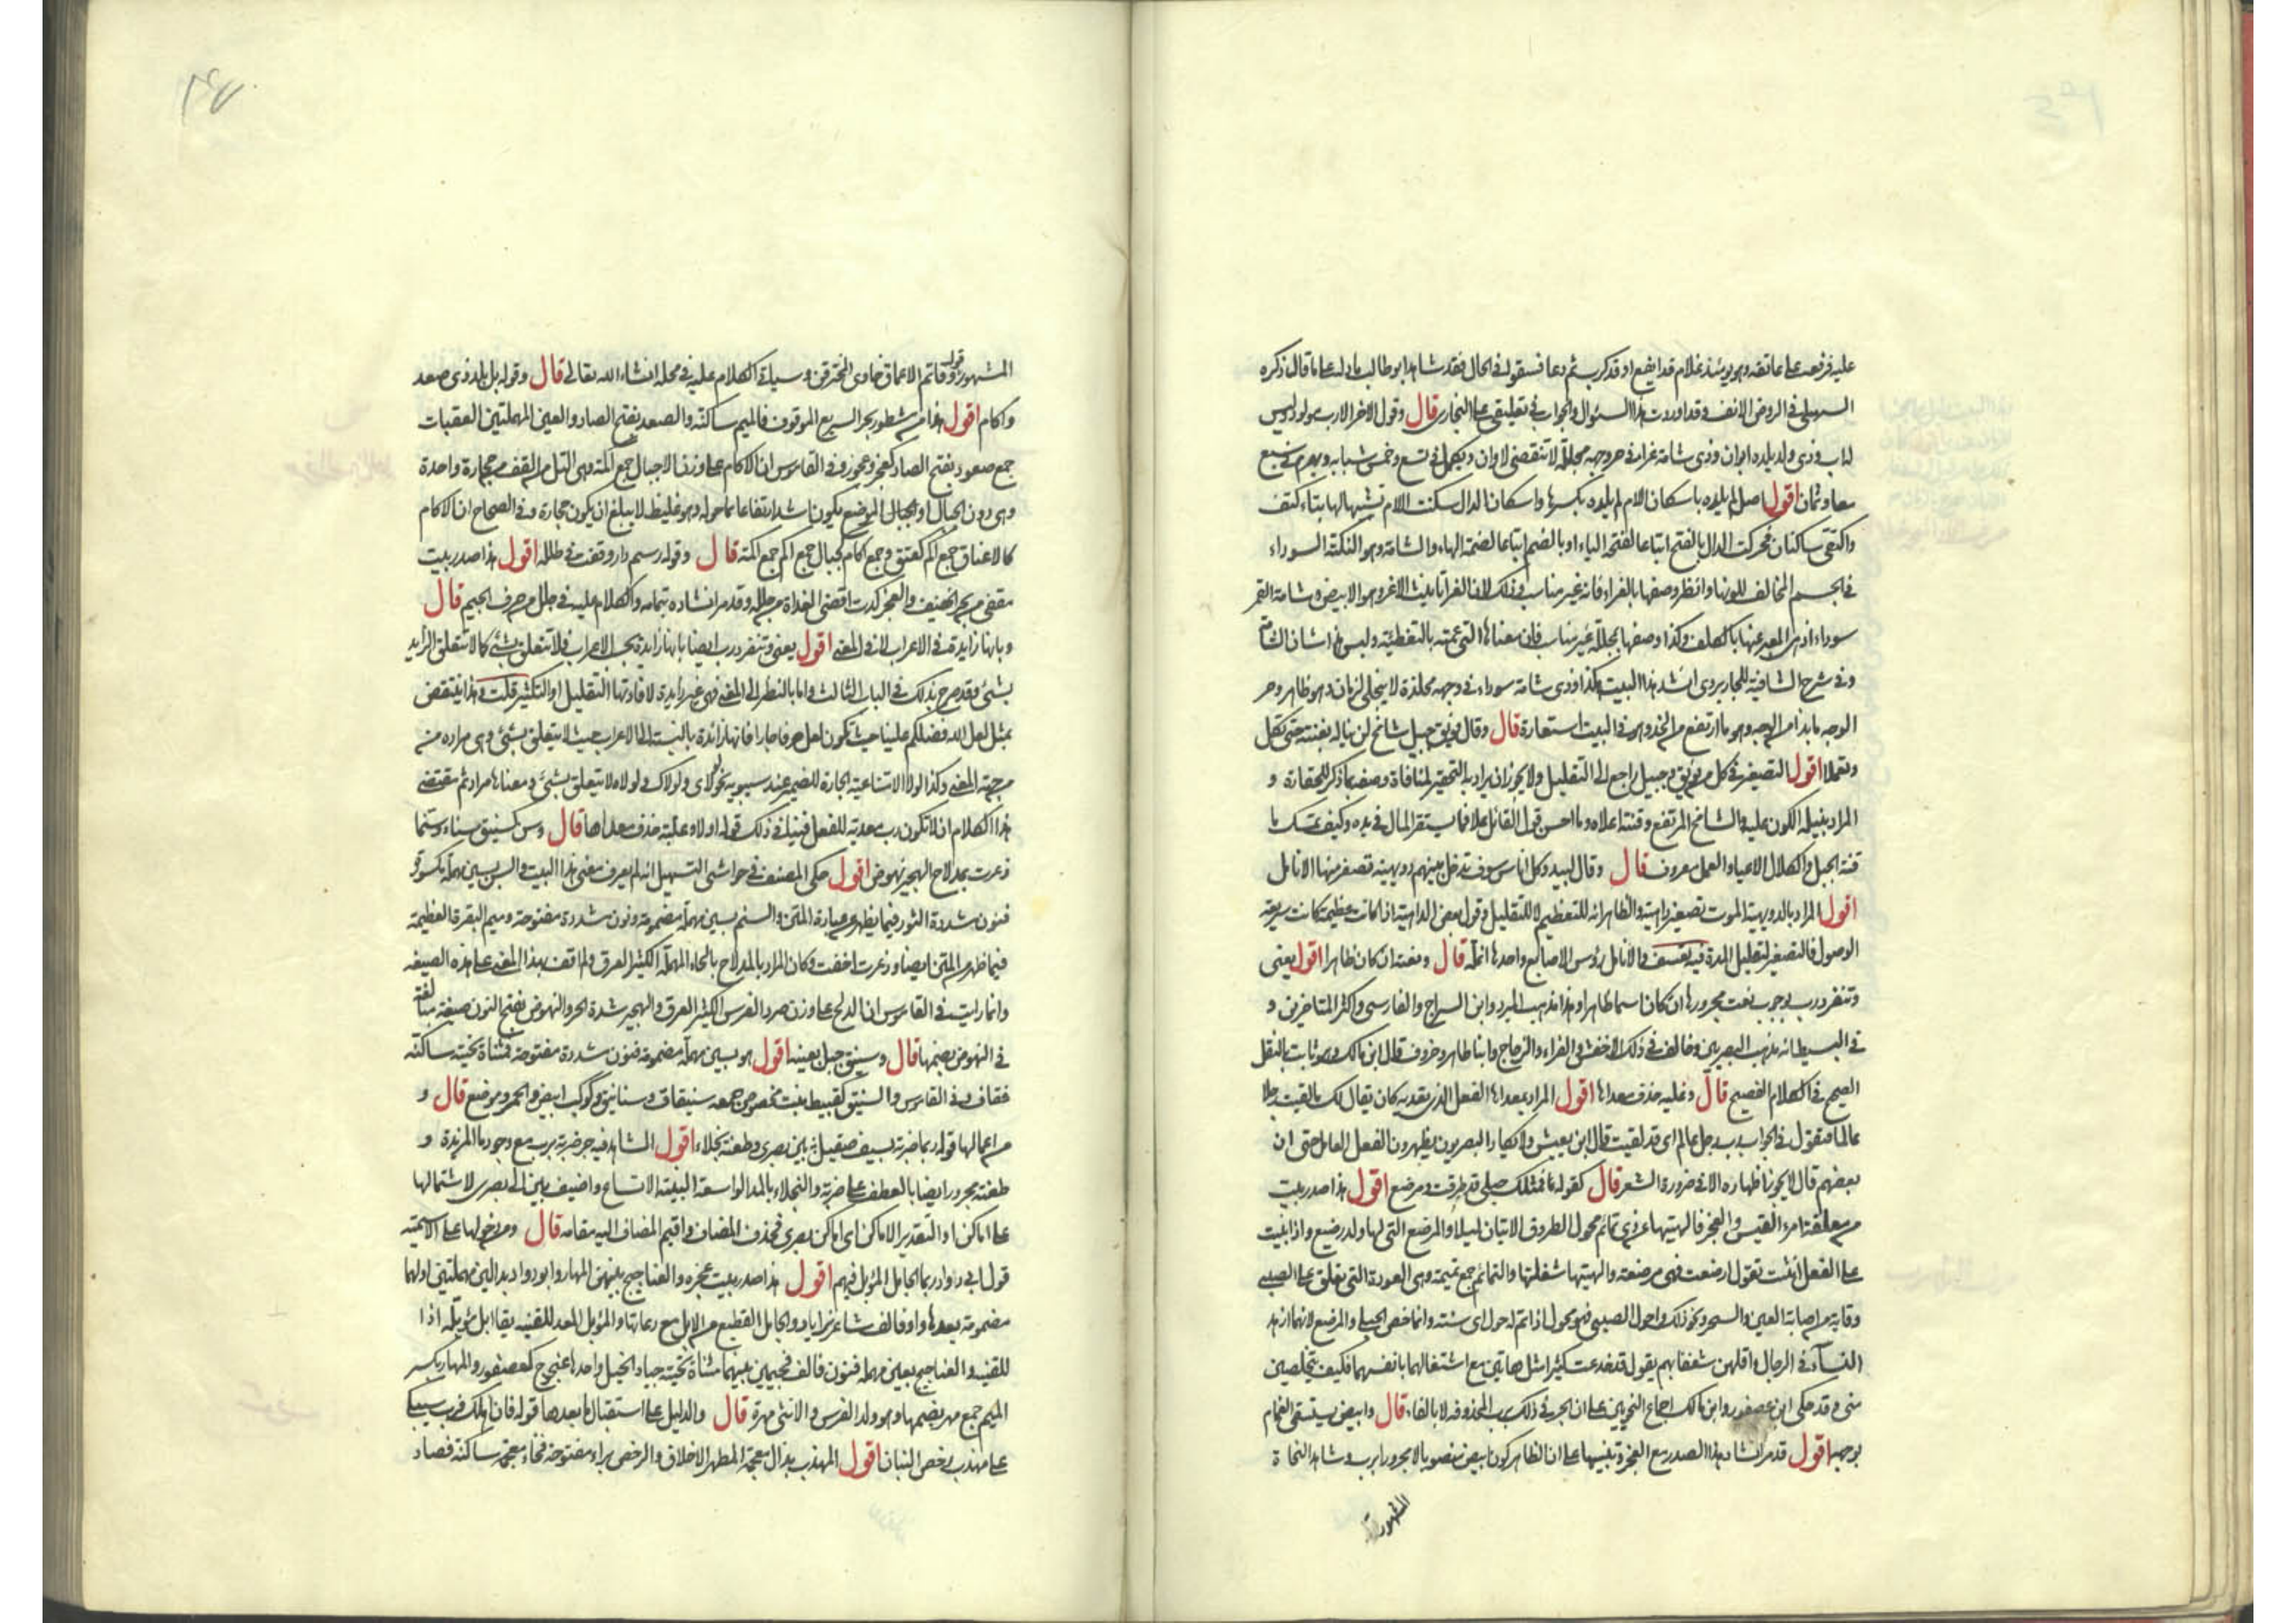 عليه فرفعه على عاتقه وهو يومئذ غلام قد ايفع او قد كرب ثم دعا فسقوا فى الحال فقد شاهد ابو طالب ما دله على ما قال ذكره
السهيلى فى الروض الانف وقد اوردت هذا السؤال والجواب فى تعليقى على البخارى قال وقول الاخر الا رب مولود وليس
له اب وذى ولد لم يلده ابوان وذى شامة غراء فى حر وجهه مجللة لا تنقضى لاوان ويكمل فى تسع وخمس شبابه ويهرم فى سبع
معا وثمان اقول اصل لم يلده باسكان اللام لم يلده بكسرها واسكان الدال سكنت اللام تشبيها لها بتاء كتف
والتقى ساكنان فحركت الدال بالفتح اتباعا لفتحة الياء او بالضم اتباعا لضمة الهاء والشامة وهو النكتة السوداء
فى الجسم المخالف للونها وانظر وصفها بالغراء فانه غير مناسب وذلك لان الغراء تانيث الاغر وهو الابيض وشامة القمر
سوداء اذ هى المعبر عنها بالكلف وكذا وصفها بمجللة غير مناسب فان معناها التى عمته بالتغطية وليس هذا شان الشامة
وفى شرح الشافية للجاربردى انشد هذا البيت هكذا وذى شامة سوداء فى وجهه مخلدة لا ينجلى لزمان وهو ظاهر وحر
الوجه ما بدا من الوجه وهو ما ارتفع من الخد وهو فى البيت استعارة قال وقال فويق جبيل شامخ لن تناله بقنته حتى تكل
وتعملا اقول التصغير فى كل من فويق وجبيل راجع الى التقليل ولا يجوز ان يراد به التحقير لمنافاة وصفه بما ذكر للحقارة و
المراد بنيله الكون عليه والشامخ المرتفع وقنته اعلاه وما احسن قول القائل علا فما يستقر المال فى يده وكيف تمسك ما
قنة الجبل والكلال الاعياء والعمل معروف قال وقال لبيد وكل اناس سوف تدخل بينهم دويهية تصفر منها الانامل
اقول المراد بالدويهية الموت تصغير داهية والظاهر انه للتعظيم لا للتقليل وقول بعض الداهية اذا كانت عظيمة كانت سريعة
الوصول فالتصغير لتقليل المدة فيه تعسف والانامل رؤس الاصابع واحدها انملة قال ونعته ان كان ظاهرا اقول يعنى
وتنفرد رب بوجوب نعت مجرورها ان كان اسما ظاهرا وهذا مذهب المبرد وابن السراج والفارسى واكثر المتاخرين و
فى البسيط انه مذهب البصريين وخالف فى ذلك الاخفش والفراء والزجاج وابنا طاهر وخروف قال ابن مالك وهو ثابت بالنقل
الصحيح فى الكلام الفصيح قال وغلبة حذف معداها اقول المراد بمعداها الفعل الذى تعديه كان يقال لك ما لقيت رجلا
عالما فتقول فى الجواب رب رجل عالم اى قد لقيت قال ابن يعيش ولا يكاد البصريون يظهرون الفعل العامل حتى ان
بعضهم قال لا يجوز اظهاره الا فى ضرورة الشعر قال كقوله فمثلك حبلى قد طرقت ومرضع اقول هذا صدر بيت
من معلقة امرء القيس والعجز فالهيتها عن ذى تمائم محول الطروق الاتيان ليلا والمرضع التى لها ولد رضيع واذا بنيت
على الفعل انثت تقول ارضعت فهى مرضعة والهيتها شغلتها والتمائم جمع تميمة وهى العودة التى تعلق على الصبى
وقاية من اصابة العين والسحر ونحو ذلك واحول الصبى فهو محول اذا تم له حول اى سنة وانما خص الحبلى والمرضع لانهما ازهد
النساء فى الرجال واقلهن شغفا بهم يقول قد خدعت كثيرا مثل هاتين مع اشتغالهما بانفسهما فكيف تتخلصين
منى وقد حكى ابن عصفور وابن مالك اجماع النحويين على ان الجر فى ذلك برب المحذوفة لا بالفاء قال وابيض يستسقى الغمام
بوجهه اقول قد مر انشاد هذا الصدر مع العجز وتنبيها على ان الظاهر كون ابيض منصوبا لا مجرورا برب وشاهد النحاة
المشهور
المشهور قوله وقاتم الاعماق خاوى المخترقن وسياتى الكلام عليه فى محله انشاء الله تعالى قال وقوله بل بلد ذى صعد
واكام اقول هذا من مشطور بحر السريع الموقوف فالميم ساكنة والصعد بفتح الصاد والعين المهملتين العقبات
جمع صعود بفتح الصاد كعجز وعجوز وفى القاموس ان الاكام على وزن الاجبال جمع اكمة وهى التل من القف من حجارة واحدة
وهى دون الجبال او الجبال الموضع يكون اشد ارتفاعا مما حوله وهو غليظ لا يبلغ ان يكون حجارة وفى الصحاح ان الاكام
كالاعناق جمع اكم كعنق وجمع اكام كجبال جمع اكم جمع اكمة قال وقوله رسم دار وقفت فى طلله اقول هذا صدر بيت
مقفى من بحر الخفيف والعجز كدت اقضى الغداة من جلله وقد مر انشاده بتمامه والكلام عليه فى جلل من حرف الجيم قال
وبانها زايدة فى الاعراب لا فى المعنى اقول يعنى وتنفرد رب ايضا بانها زايدة بحسب الاعراب فلا تتعلق بشئ كما لا تتعلق الزايد
بشئ وقد صرح بذلك فى الباب الثالث واما بالنظر الى المعنى فهى غير زايدة لافادتها التقليل او التكثير قلت وهذا ينتقض
بمثل لعل الله فضلكم علينا حيث تكون لعل حرفا جارا فانها زائدة بالنسبة الى الاعراب حيث لا يتعلق بشئ وهى مرادة
من جهة المعنى وكذا لولا الامتناعية الجارة للضمير عند سيبويه نحو لولاى ولولاك ولولاه لا يتعلق بشئ ومعناها مراد ثم مقتضى
هذا الكلام ان لا تكون رب معدية للفعل فينافى ذلك قوله اولا وغلبة حذف معداها قال وسن كسنيق سناء وسنما
ذعرت بمدلاج الهجير نهوض اقول حكى المصنف فى حواشى التسهيل انه لم يعرف معنى هذا البيت والسن بسين مهملة مكسورة
فنون مشددة الثور فيما يظهر من عبارة المتن والسنم بسين مهملة مضمومة ونون مشددة مفتوحة وميم البقرة العظيمة
فيما ظهر من المتن ايضا وذعرت اخفت وكان المراد بالمدلاح بالحاء المهملة الكثير العرق ولم اقف بهذا المعنى على هذه الصيغة
وانما رايت فى القاموس ان الدلح على وزن صرد الفرس الكثير العرق والهجير شدة الحر والنهوض بفتح النون صيغة مبالغة
فى النهوض بضمها قال وسنيق جبل بعينه اقول هو بسين مهملة مضمومة فنون مشددة مفتوحة فمثناة تحتية ساكنة
فقاف وفى القاموس والسنيق كقبيط بيت مخصوص جمعه سنيقات وسنانيق وكوكب ابيض والحمر وموضع قال و
من اعمالها قوله ربما ضربة بسيف صقيل بين بصرى وطعنة نجلاء اقول الشاهد فيه جر ضربة برب مع وجود ما المزيدة و
طعنة مجرور ايضا بالعطف على ضربة والنجلاء بالمد الواسعة البينة الاتساع واضيف بين الى بصرى لاشتمالها
على اماكن او التقدير الاماكن اى اماكن بصرى فحذف المضاف واقيم المضاف اليه مقامه قال ومن دخولها على الاسمية
قول ابى دواد ربما الجامل المؤبل فيهم اقول هذا صدر بيت عجزه والعناجيج بينهن المهار وابو دواد بدالين مهملتين اولهما
مضمومة بعدها واو فالف شاعر من اياد والجامل القطيع من الابل مع رعاتها والمؤبل المعد للقنية يقال ابل مؤبلة اذا
للقنية والعناجيج بعين مهملة فنون فالف فجيمين بينهما مثناة تحتية جياد الخيل واحدها عنجوج كعصفور والمهار بكسر
الميم جمع مهر بضمها وهو ولد الفرس والانثى مهرة قال والدليل على استقبال ما بعدها قوله فان اهلك فرب فتى سيبكى
على مهذب رخص البنان اقول المهذب بذال معجمة المطهر الاخلاق والرخص براء مفتوحة فخاء معجمة ساكنة فصاد